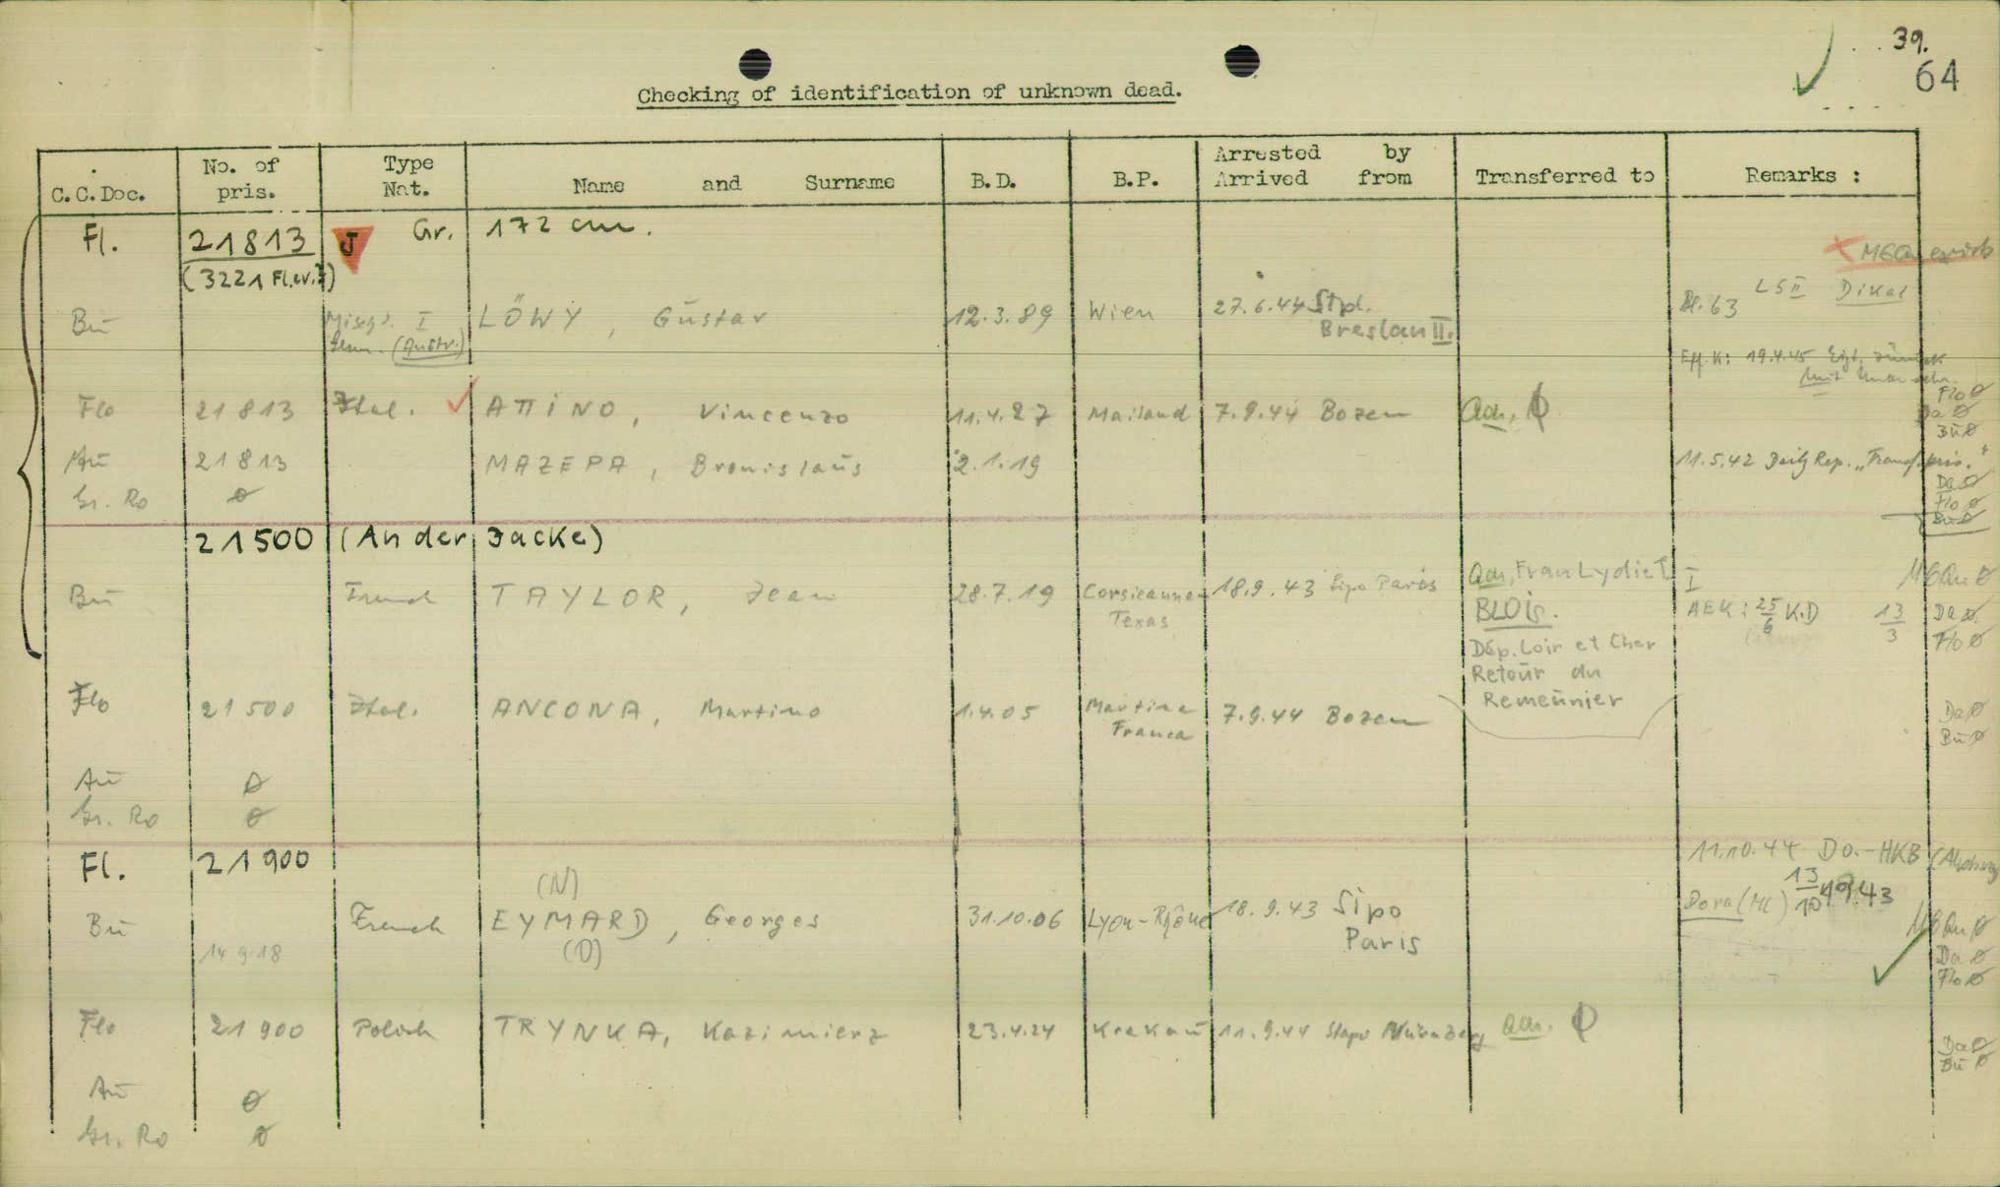 39.
64
Checking of identification of unknown dead.
C.C.Doc. No. of pris. Type Nat. Name and Surname B.D. B.P. Arrested by Arrived from Transferred to Remarks :
Fl. 21813 J Gr. 172 cm.
(3221 Fl.
Bū I LÖWY, Gūstav 12.3.89 Wien 27.6.44 Stpl. Breslau II. Bl. 63 LS II Dikal
(Austr.)
Eff. K: 19.4.45
Flo 21813 Ital. ATTINO, Vincenzo 11.4.27 Mailand 7.9.44 Bozen Flo ø
Da ø
Bū ø
Aū 21813 MAZEPA, Bronislaūs 2.1.19 11.5.42 Daily Rep. „Transf.
Gr. Ro ø Da ø
Flo ø
Bū ø
21500 (An der Jacke)
Bū French TAYLOR, Jean 28.7.19 Texas 18.9.43 Sipo Paris I
BLOIS. AEK: 25/6 K.D 13/3 Da ø
Dép. Loir et Cher Flo ø
Retoūr du
Remeūnier
Flo 21500 Ital. ANCONA, Martino 1.4.05 Martina Franca 7.9.44 Bozen Da ø
Bū ø
Aū ø
Gr. Ro ø
Fl. 21900 11.10.44 Do.-HKB
(N)
Bū French EYMARD, Georges 31.10.06 Lyon-Rhône 18.9.43 Sipo Paris Dora 13/10
14.9.18 (D) Da ø
Flo ø
Flo 21900 Polish TRYNKA, Kazimierz 23.4.24 Krakaū 11.9.44 Stapo Nürnberg Da ø
Bū ø
Aū ø
Gr. Ro ø